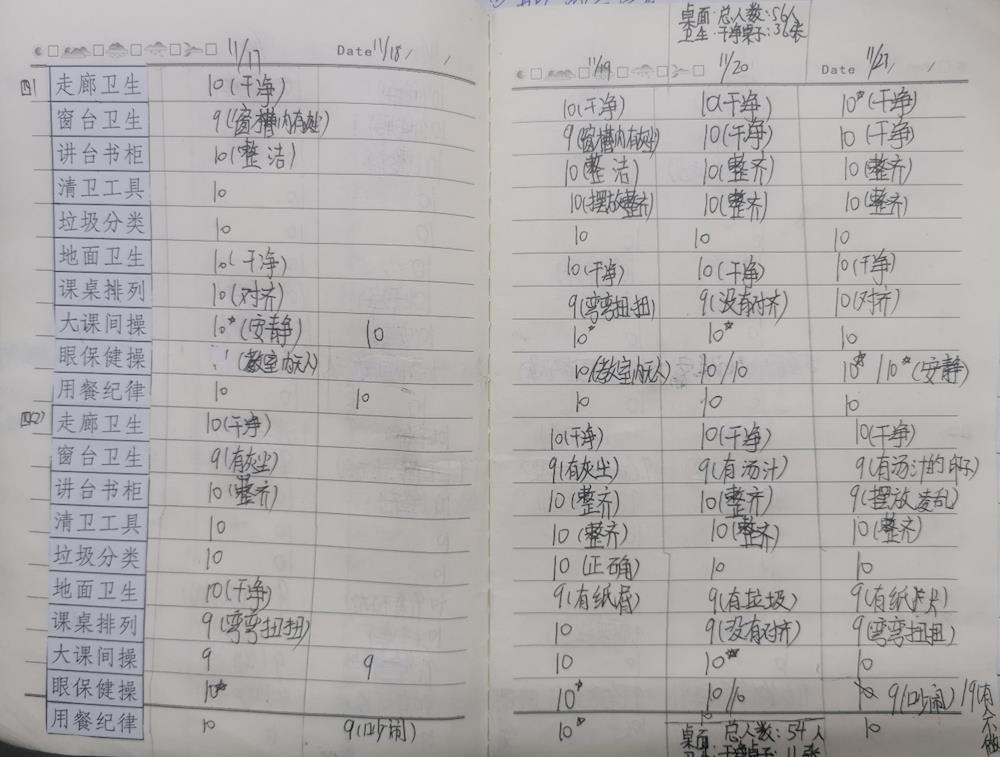 桌面:总人数:56人
卫生:干净桌子:36张
11/17 Date 11/18 11/19 11/20 Date 11/21
四1 走廊卫生 10(干净) 10(干净) 10(干净) 10*(干净)
窗台卫生 9(窗槽内有灰尘) 9(窗槽内有灰尘) 10(干净) 10(干净)
讲台书柜 10(整洁) 10(整洁) 10(整齐) 10(整齐)
清卫工具 10 10(摆放整齐) 10(整齐) 10(整齐)
垃圾分类 10 10 10 10
地面卫生 10(干净) 10(干净) 10(干净) 10(干净)
课桌排列 10(对齐) 9(弯弯扭扭) 9(没有对齐) 10(对齐)
大课间操 10*(安静) 10 10* 10* 10
眼保健操 (教室内无人) 10(教室内无人) 10/10 10*/10*(安静)
用餐纪律 10 10 10 10 10
四(2) 走廊卫生 10(干净) 10(干净) 10(干净) 10(干净)
窗台卫生 9(有灰尘) 9(有灰尘) 9(有汤汁) 9(有汤汁的印子)
讲台书柜 10(整齐) 10(整齐) 10(整齐) 9(摆放凌乱)
清卫工具 10 10(整齐) 10(整齐) 10(整齐)
垃圾分类 10 10(正确) 10 10
地面卫生 10(干净) 9(有纸屑) 9(有垃圾) 9(有纸卡片)
课桌排列 9(弯弯扭扭) 10 9(没有对齐) 9(弯弯扭扭)
大课间操 9 9 10 10* 10
眼保健操 10* 10* 10/10 9(吵闹) /9(有人不做
用餐纪律 10 9(吵闹) 10* 10 10
桌面:总人数:54人
卫生:干净桌子:11张